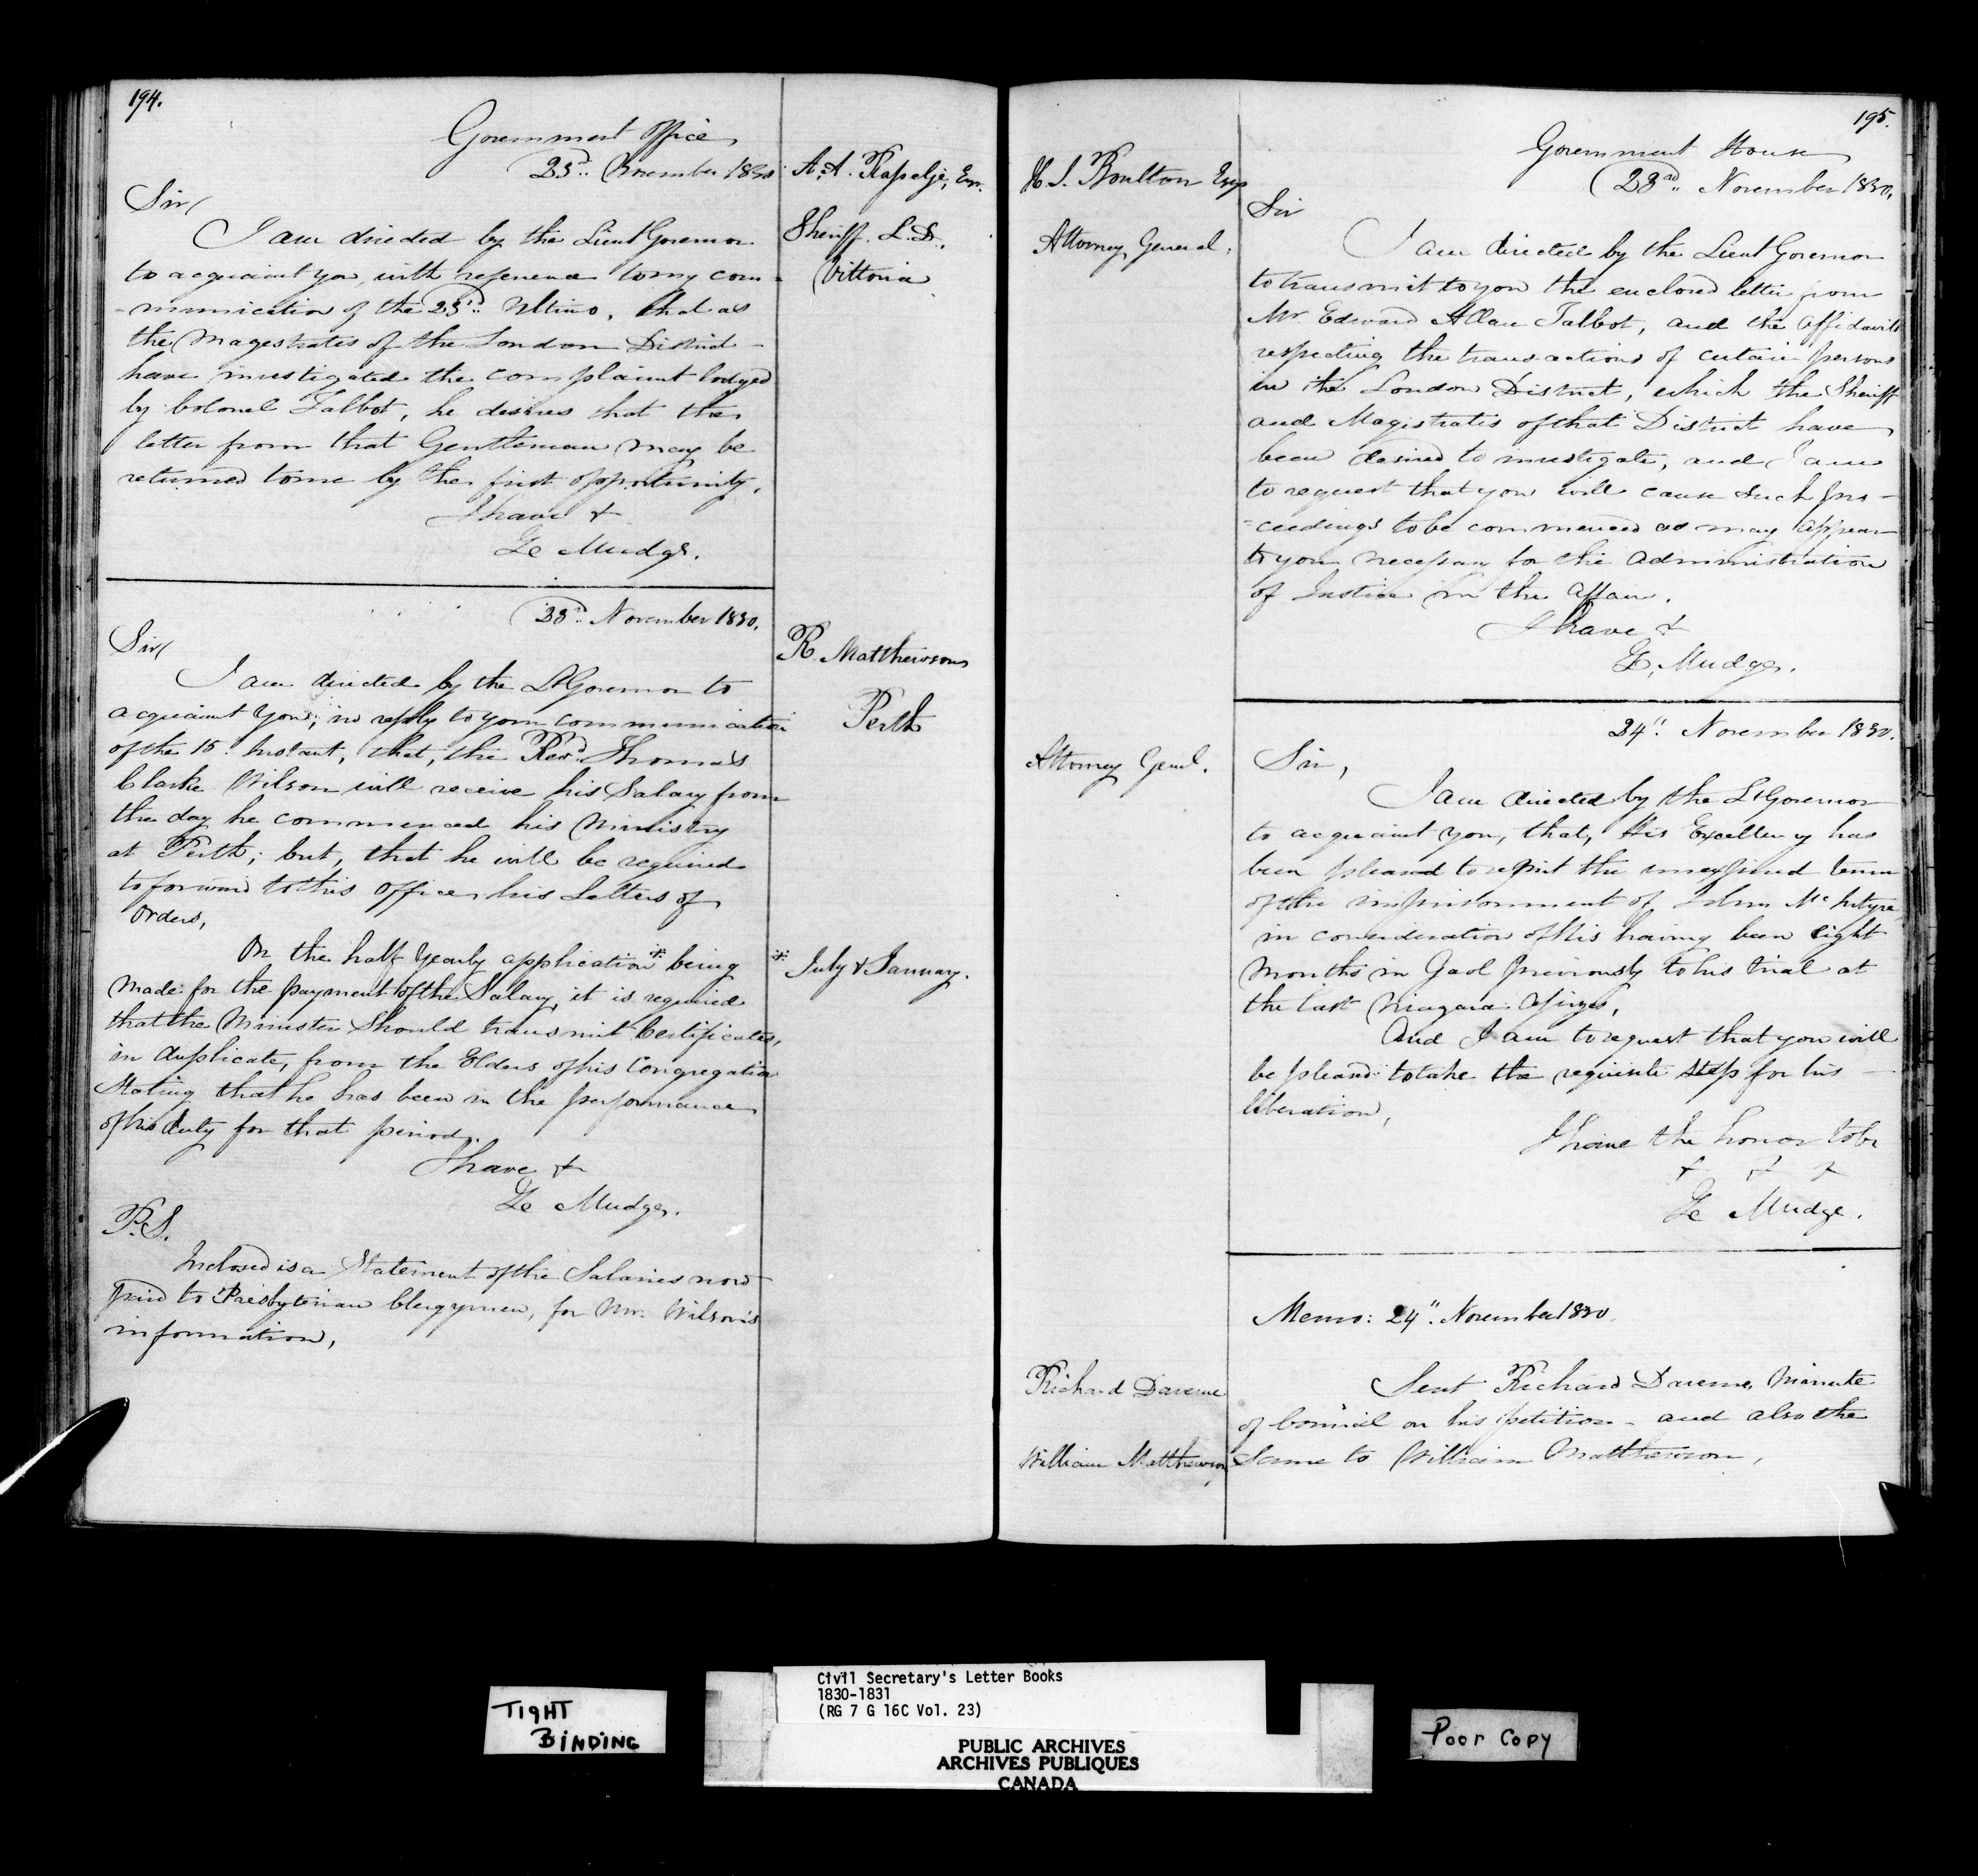 194.
Government Office
23d. November 1830
A. A. Rapelje, Esqr.
Sheriff. L. D.,
Vittoria
Sir/
I am directed by the Lieut Governor
to acquaint you, with reference to my com-
-munication of the 23d. Ultimo, that as
the Magestrates of the London District
have investigated the complaint lodged
by Colonel Talbot, he desires that the
letter from that Gentleman may be
returned to me by the first opportunity.
I have &
Z. Mudge.
23d. November 1830.
R. Matthewson
Perth
Sir/
I am directed by the Lt Governor to
acquaint you, in reply to your communication
of the 15. Instant, that, the Revd. Thomas
Clarke Wilson will receive his Salary from
the day he commenced his Ministry
at Perth; but, that he will be required
to forward to this Office his Letters of
Orders,
On the half Yearly application * being
* July & January.
made for the payment of the Salary, it is required
that the Minister should transmit Certificates,
in duplicate, from the Elders of his Congregation
Stating that he has been in the performance
of his duty for that period.
I have &
Z. Mudge.
P.S.
Inclosed is a Statement of the Salaries now
paid to Presbyterian Clergymen, for Mr. Wilson's
information,
195.
Government House
23rd. November 1830.
H. J. Boulton Esqr
Attorney General.
Sir
I am directed by the Lieut Governor
to transmit to you the enclosed letter from
Mr Edward Allan Talbot, and the affidavits
respecting the transactions of certain persons
in the London District, which the Sheriff
and Magistrates of that District have
been desired to investigate, and I am
to request that you will cause such pro-
-ceedings to be commenced as may appear
to you necessary for the administration
of Justice in the affair.
I have &
Z. Mudge.
24". November 1830.
Attorney Genl.
Sir,
I am directed by the Lt Governor
to acquaint you, that, His Excellency has
been pleased to remit the unexpired term
of the imprisonment of John McIntyre
in consideration of his having been eight
months in Gaol previously to his trial at
the last Niagara Assizes,
And I am to request that you will
be pleased to take the requisite steps for his
liberation,
I have the honor to be
& & &
Z. Mudge.
Memo: 24". November 1830.
Richard Daverne
Sent Richard Daverne, Minute
of Council on his petition - and also the
William Matthewson
Same to William Matthewson,
TIGHT
BINDING
Civil Secretary's Letter Books
1830-1831
(RG 7 G 16C Vol. 23)
PUBLIC ARCHIVES
ARCHIVES PUBLIQUES
CANADA
Poor Copy